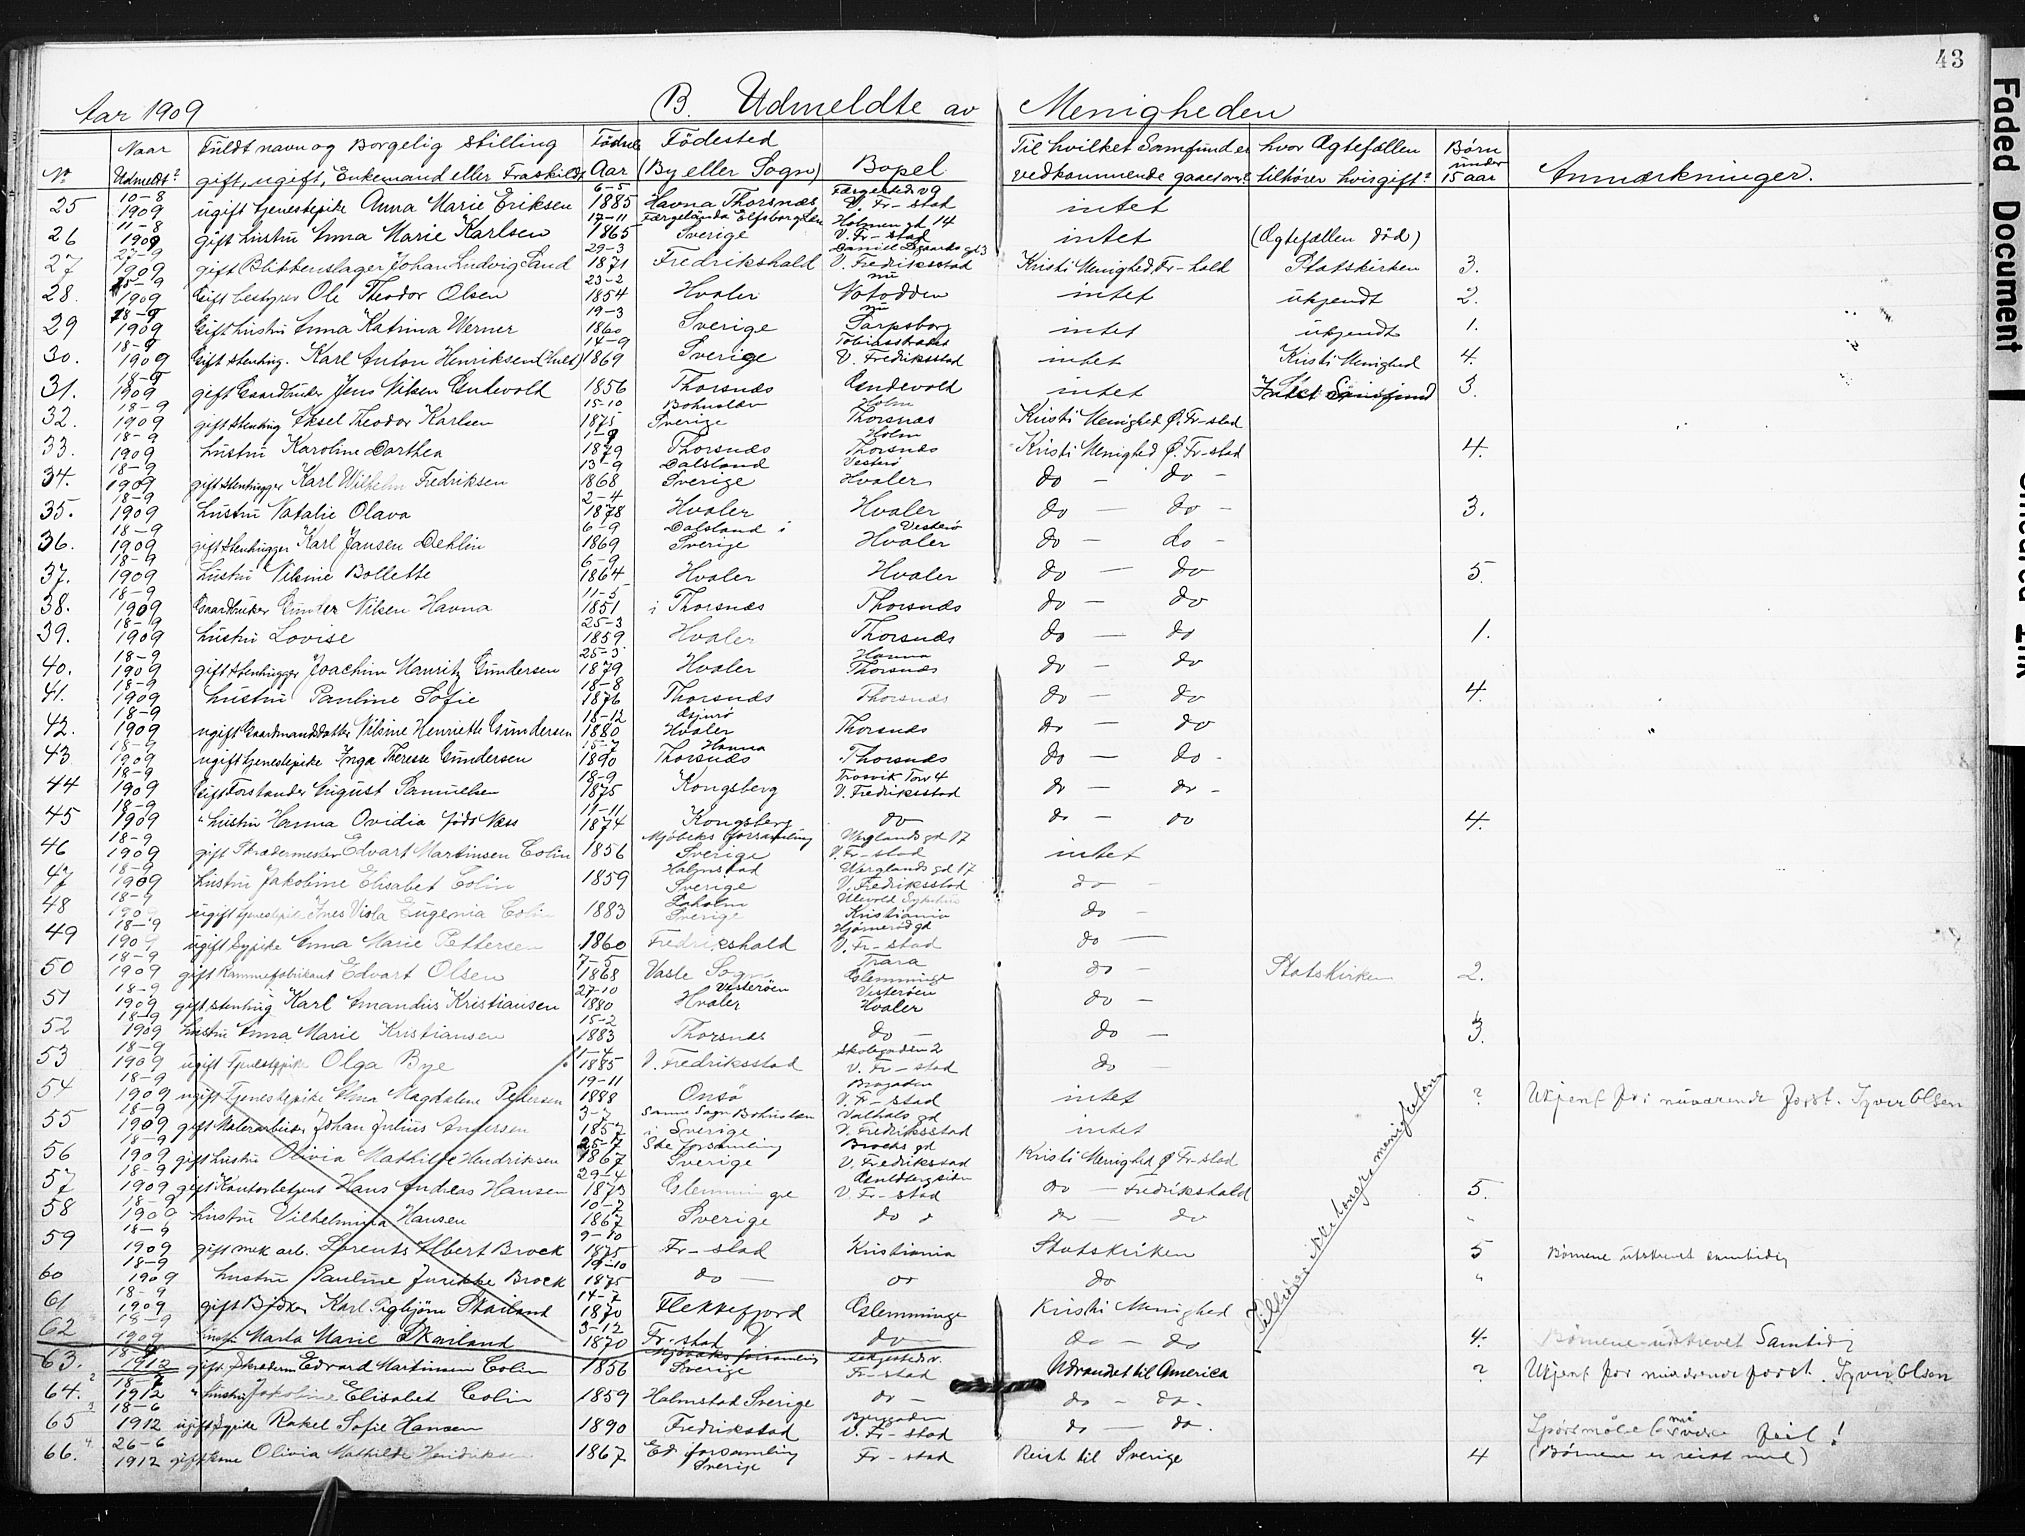 43
Aar 1909 B. Udmeldte av Menigheden
No Naar Udmeldt? Fuldt navn og Borgelig Stilling gift, ugift, Enkemand eller Fraskildt Fødsels Aar Fødested (By eller Sogn) Bopel Til hvilket Samfund er vedkommende gaaet over? hvor Ægtefællen tilhører hvis gift? Børn under 15 aar Anmærkninger.
25 10-8 1909 ugift tjenestepike Anna Marie Eriksen 6-5 1885 Havna Thorsnæs Færgestedv 9 V. Fr-stad intet
26 11-8 1909 gift hustru Anna Marie Karlsen 17-11 1865 Færgelanda Elfsborg Len Sverige Holmen gd 14 V. Fr-stad intet (Ægtefællen død)
27 27-9 1909 gift Blikkenslager Johan Ludvig Sand 29-3 1871 Fredrikshald V. Fredriksstad Kristi Menighed, Fr-hald Statskirken 3.
28. 1909 Gift bestyrer Ole Theodor Olsen 23-2 1854 Hvaler nu Notodden intet ukjendt 2.
29 18-9 1909 Gift hustru Anna Katrina Werner 19-3 1860 Sverige nu Sarpsborg intet ukjendt 1.
30. 18-9 1909 Gift stenhug. Karl Anton Henriksen (Hult) 14-9 1869 Sverige V. Fredriksstad intet Kristi Menighed 4.
31. 18-9 1909 gift Gaardbruker Jens Nilsen Endevold 1856 Thorsnæs intet Intet Samfund 3.
32. 18-9 1909 gift Stenhug Aksel Theodor Karlsen 15-10 1875 Bohuslæn Sverige Holm Thorsnæs Kristi Menighed Ø. Fr-stad
33. 18-9 1909 hustru Karoline Dorthea 1-9 1879 Thorsnæs Holm Thorsnæs Kristi Menighed Ø. Fr-stad 4.
34. 18-9 1909 gift Stenhugger Karl Wilhelm Fredriksen 13-9 1868 Dalsland Sverige Vesterö Hvaler do - do -
35. 18-9 1909 hustru Natalie Olava 2-4 1878 Hvaler Hvaler do - do - 3.
36. 18-9 1909 gift Stenhugger Karl Jansen Dehlin 6-9 1869 Dalsland i Sverige Vesterö Hvaler do - do -
37. 18-9 1909 hustru Nilsine Bollette 6-9 1864 Hvaler Hvaler do - do 5.
38. 18-9 1909 Gaardbruker Gunder Nilsen Havna 11-5 1851 i Thorsnæs Thorsnæs do - do
39. 18-9 1909 hustru Lovise 25-3 1859 Hvaler Thorsnæs do - do 1.
40. 18-9 1909 gift Stenhugger Joachim Mauritz Gundersen 25-3 1879 Hvaler Havna Thorsnæs do - do
41. 18-9 1909 hustru Pauline Sofie 18-8 1876 Thorsnæs Thorsnæs do - do 4.
42. 18-9 1909 ugift Gaardmandsdatter Nilsine Henriette Gundersen 18-12 1880 Hvaler Thorsnæs do - do
43 18-9 1909 ugift tjenestepike Inga Therese Gundersen 15-7 1890 Havna Thorsnæs Thorsnæs do - do -
44 18-9 1909 Gift Forstander August Samuelsen 18-9 1875 Kongsberg Trosvik Torv 4 V. Fredriksstad do - do -
45 18-9 1909 " hustru Hanna Ovidia født Næss 11-11 1874 Kongsberg do do - do 4.
46 18-9 1909 gift Skrædermester Edvart Martinsen Colin 1856 Mjöbäks forsamling Sverige Werglands gd 17 V. Fr-stad intet
47 18-9 1909 hustru Jakobine Elisabet Colin 1859 Halmstad Sverige Werglands gd 17 V. Fredriksstad do -
48 18-9 1909 ugift tjenestepike Ines Viola Eugenia Colin 1883 Laholm Sverige Kristiania do -
49 18-9 1909 ugift Sypike Anna Marie Pettersen 1860 Fredrikshald V. Fr-stad do -
50 18-9 1909 gift Kammefabrikant Edvart Olsen 7-5 1868 Vasle Sogn Trara Glemminge do - Statskirken 2.
51 18-9 1909 gift, stenhug Karl Amandus Kristiansen 27-10 1880 Vesteröen Hvaler Vesteröen Hvaler do -
52 18-9 1909 hustru Anna Marie Kristiansen 15-2 1883 Thorsnæs do - do - 3.
53 18-9 1909 ugift tjenestepike Olga Bye 1-4 1885 V. Fredriksstad Skolegaden 2 V. Fr-stad do -
54 18-9 1909 ugift Tjenestepike Alma Magdalene Pedersen 19-11 1888 Onsö V. Fr-stad intet ? Ukjent for nuværende forst. Syver Olsen
55 18-9 1909 gift Malerarbeider Johan Julius Andersen 3-7 1857 Sanne Sogn Bohuslæn i Sverige Valhals gd V. Fredriksstad intet
56 18-9 1909 gift hustru Olivia Mathilde Hendriksen 25-7 1867 Ske forsamling Sverige Brochs gd V. Fredriksstad Kristi Menighed Ø Fr-stad
57 18-9 1909 gift Kontorbetjent Hans Andreas Hansen 29-4 1873 Glemminge V. Fr-stad do - Fredrikshald 5.
58 18-9 1909 hustru Vilhelmina Hansen 10-7 1867 Sverige do do - do "
59 18-9 1909 gift mek arb. Lorents Albert Brock 9-10 1875 Fr-stad Kristiania Statskirken 5 Børnene utskrevet samtidig
60 18-9 1909 hustru Pauline Brock 19-10 1875 do - do do "
61 18-9 1909 gift Karl Sigbjørn Skailand 14-7 1870 Flekkefjord Glemminge Kristi Menighed
62 18-9 1909 hustru Marta Marie Skailand 3-12 1870 Fr-stad do do - do 4. Børnene utskrevet Samtidig
Tilhører ikke længre menigheten
63. 1912 gift Skrædderm Edvard Martinsen Colin 1856 Mjöbäks forsamling Sverige Fr-stad Udvandret til America ? Ukjent for nuværende forst. Syver Olsen
64. 1912 " hustru Jakobine Elisabet Colin 1859 Halmstad Sverige do - do - do -
65 18-6 1912 ugift Sypike Rakel Sofie Hansen 1890 Fredriksstad V. Fr-stad do - do Spørsmålet må være feil!
66. 26-6 1912 gift kone Olivia Mathilde Hendriksen 1867 Ed forsamling Sverige Fr-stad Reist til Sverige 4 (Børnene er reist med)
Faded Document